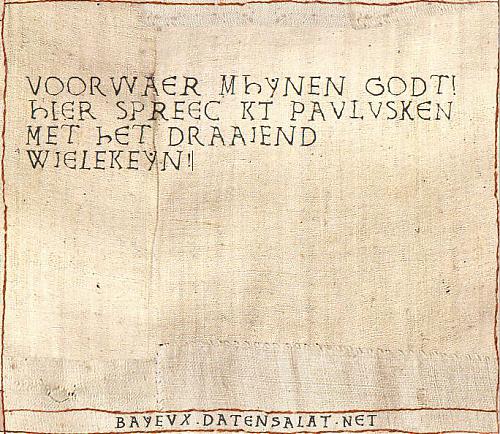 VOORWAER MhYNEN GODT!
hIER SPREEC KT PAVLVSKEN
MET hET DRAAIEND
WIELEKEYN!
BAYEVX.DATENSALAT.NET